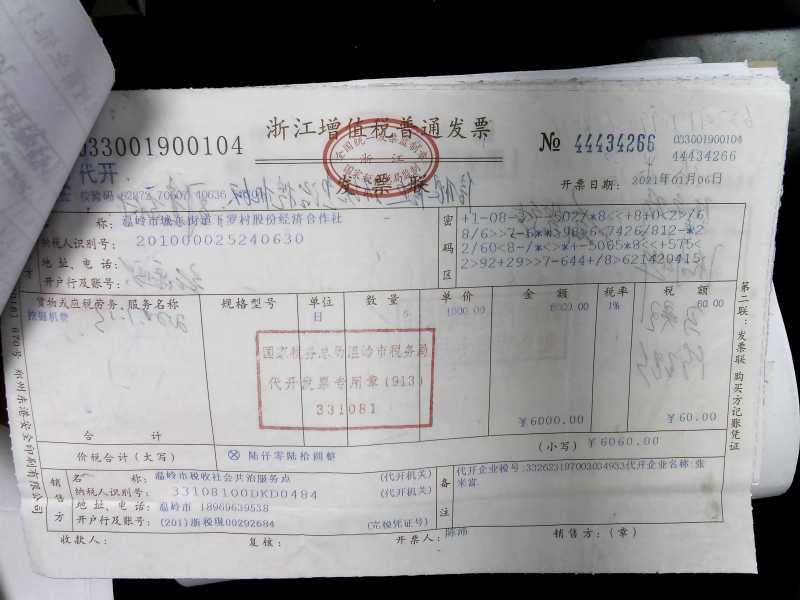 033001900104
浙江增值税普通发票
№ 44434266
033001900104
44434266
代开
发票联
全国统一发票监制章
浙江
开票日期: 2021年01月06日
名 称: 温岭市城东街道下罗村股份经济合作社
纳税人识别号: 201000025240630
地 址、电 话:
开户行及账号:
密码区
2/60<8-/*<>*+-5065*8<<+575<
2>92+29>>7-644+/8>621420415<
货物或应税劳务、服务名称 规格型号 单位 数量 单价 金额 税率 税额
挖掘机费 日 6 1000.00 6000.00 1% 60.00
国家税务总局温岭市税务局
代开发票专用章(913)
331081
合 计 ¥6000.00 ¥60.00
价税合计(大写) ⊗ 陆仟零陆拾圆整 (小写) ¥6060.00
销售方
名 称: 温岭市税收社会共治服务点 (代开机关)
纳税人识别号: 33108100DKD0484 (代开机关)
地 址、电 话: 温岭市 18969639538
开户行及账号: (201)浙税现00292684 (完税凭证号)
备注
代开企业税号:332623197003034933代开企业名称:张
米富
收款人: 复核: 开票人: 销售方:(章)
第二联:发票联 购买方记账凭证